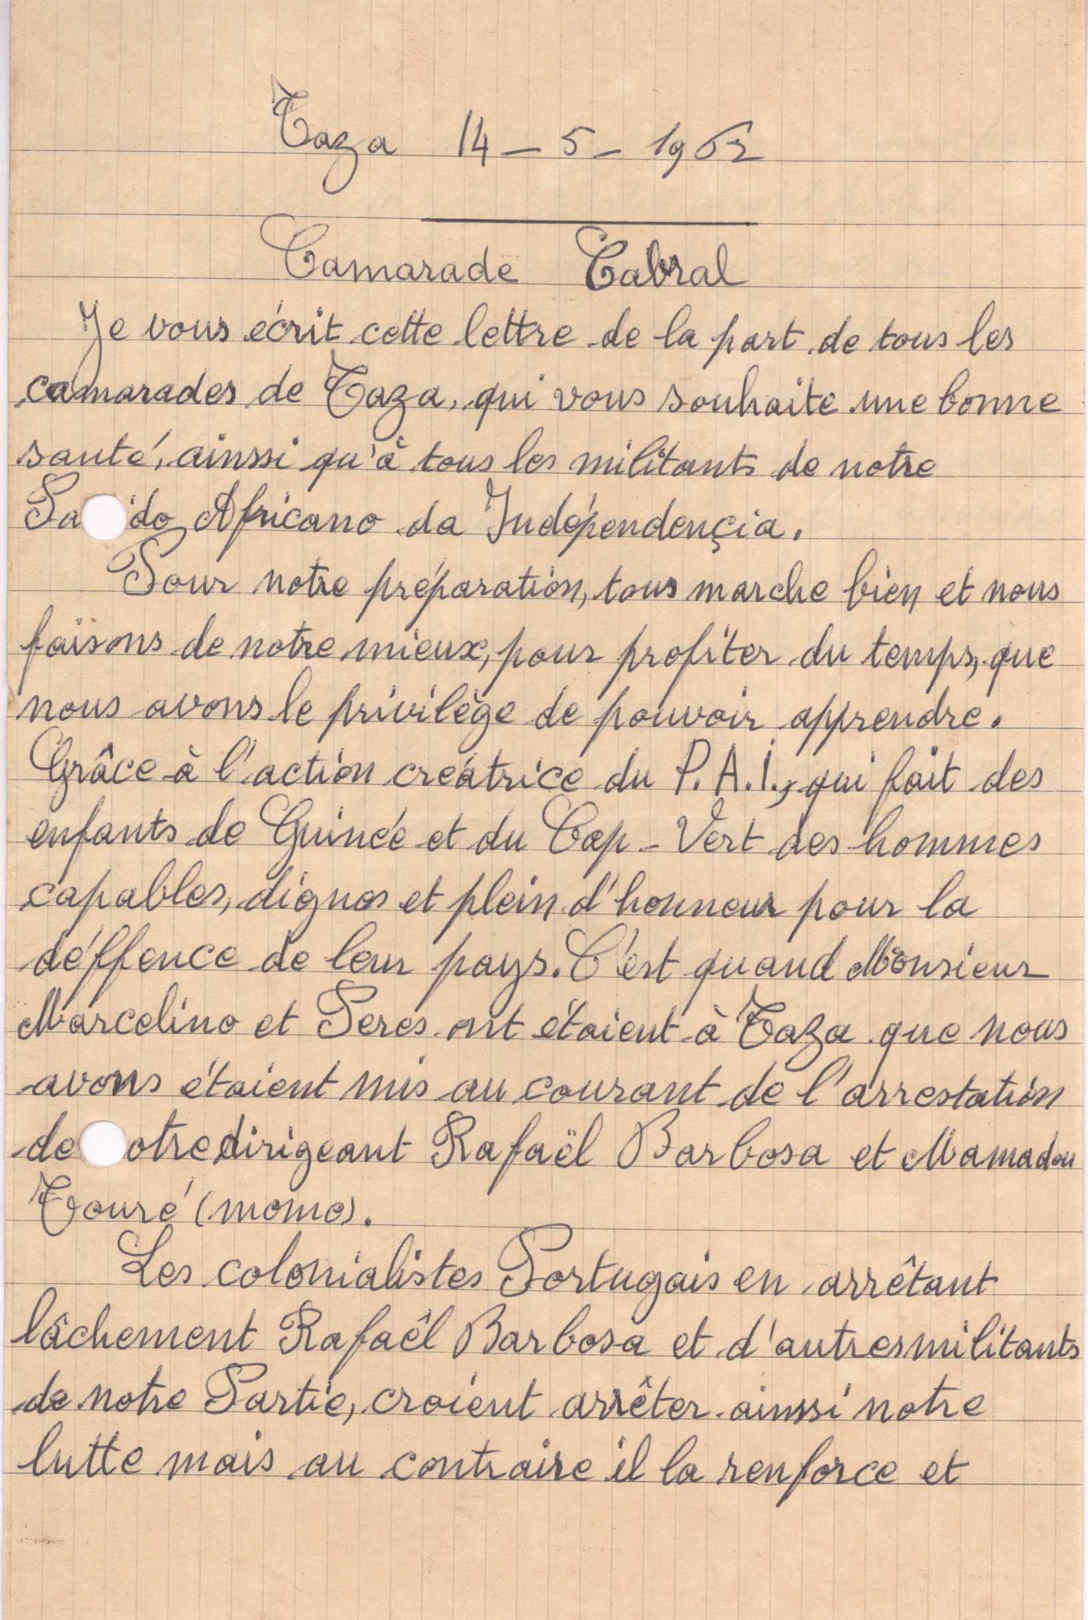 Taza 14 - 5 - 1962
Camarade Cabral
Je vous écrit cette lettre de la part de tous les
camarades de Taza, qui vous souhaite une bonne
santé, ainssi qu'à tous les militants de notre
Pa do Africano da Indépendençia.
Pour notre préparation, tous marche bien et nous
faisons de notre mieux, pour profiter du temps, que
nous avons le privilège de pouvoir apprendre.
Grâce à l'action creátrice du P.A.I., qui fait des
enfants de Guinée et du Cap-Vert des hommes
capables, dignes et plein d'honneur pour la
déffence de leur pays. C'est quand Monsieur
Marcelino et Peres ont étaient à Taza que nous
avons étaient mis au courant de l'arrestation
de otre dirigeant Rafaël Barbosa et Mamadou
Touré (momo).
Les colonialistes Portugais en arrêtant
lâchement Rafaël Barbosa et d'autres militants
de notre Partie, croient arrêter ainssi notre
lutte mais au contraire il la renforce et